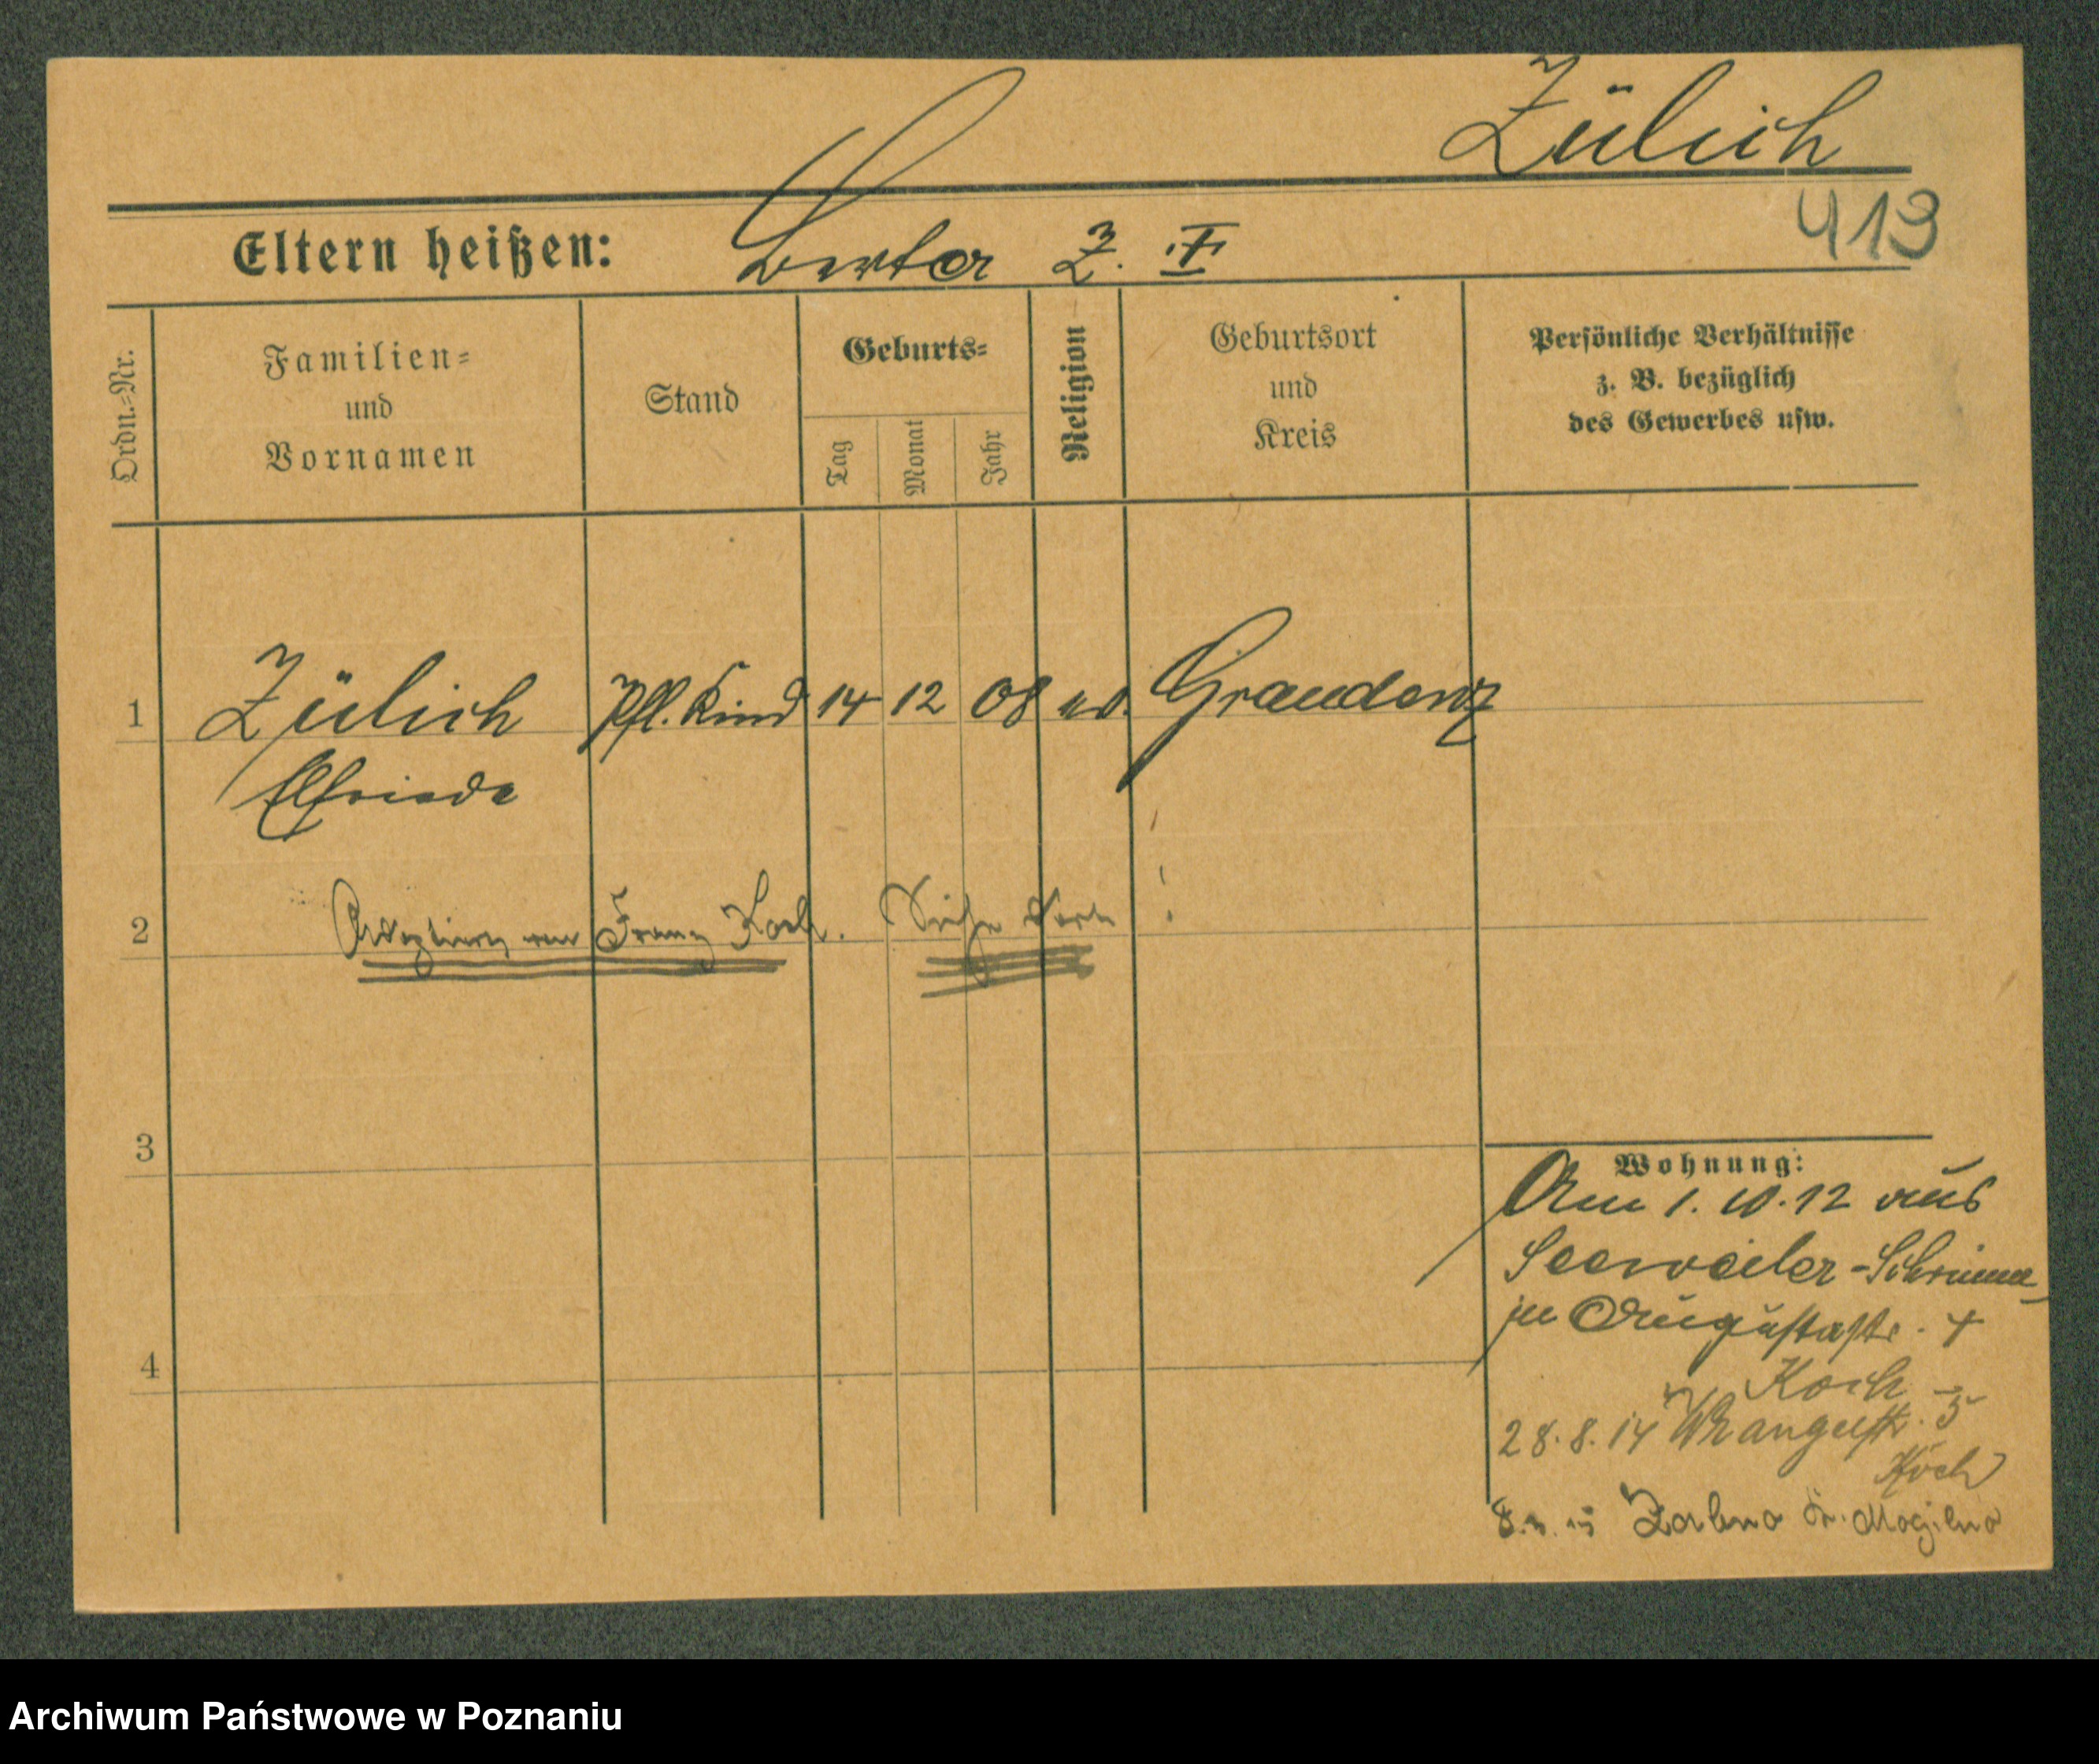 Zülich
413
Eltern heißen: Z.
Ordn.=Nr.
Familien=
und
Vornamen
Stand
Geburts=
Tag
Monat
Jahr
Religion
Geburtsort
und
Kreis
Persönliche Verhältnisse
z. B. bezüglich
des Gewerbes usw.
1 Zülich Pfl. Kind 14 12 08 Graudenz
Elfriede
2 Franz Koch. Siehe dort!
3
Wohnung:
Am 1. 10. 12 aus
Seeweiler-Schrimm
zu Augustastr. 4
4
Koch
28.8.14 Wrangelstr. 5
Koch
Zabno Kr. Mogilno
Archiwum Państwowe w Poznaniu